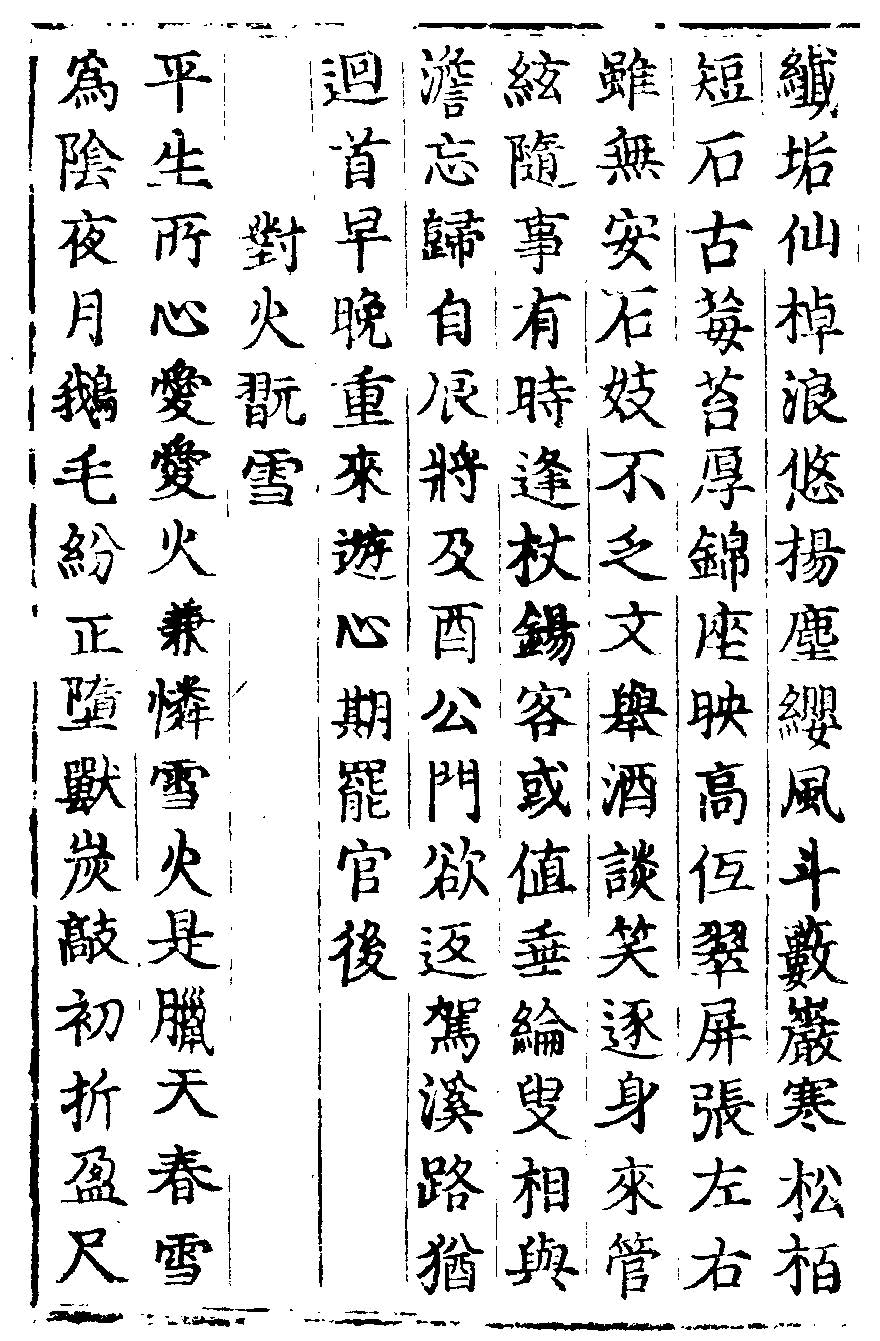 纎垢仙棹浪悠揚塵纓風斗藪巖寒松栢
短石古莓苔厚錦座映高低翠屏張左右
雖無安石妓不乏文舉酒談笑逐身來管
絃隨事有時逢杖錫客或值垂綸叟相與
澹忘歸自辰將及酉公門欲返駕溪路猶
迴首早晚重來遊心期罷官後
對火翫雪
平生所心愛愛火兼憐雪火是臘天春雪
爲陰夜月鵝毛紛正墮獸炭敲初折盈尺